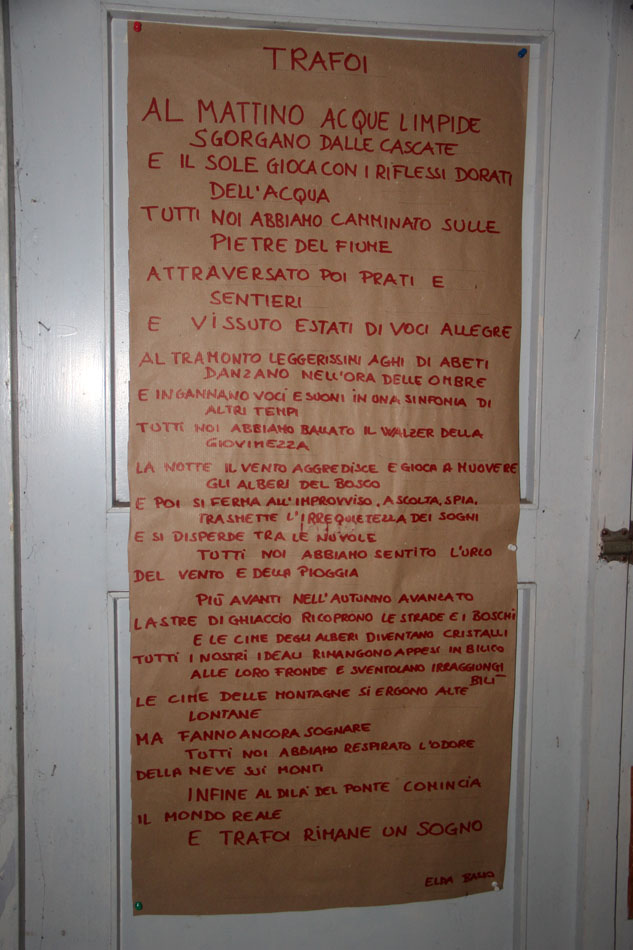 TRAFOI
AL MATTINO ACQUE LIMPIDE
SGORGANO DALLE CASCATE
E IL SOLE GIOCA CON I RIFLESSI DORATI
DELL'ACQUA
TUTTI NOI ABBIAMO CAMMINATO SULLE
PIETRE DEL FIUME
ATTRAVERSATO POI PRATI E
SENTIERI
E VISSUTO ESTATI DI VOCI ALLEGRE
AL TRAMONTO LEGGERISSIMI AGHI DI ABETI
DANZANO NELL'ORA DELLE OMBRE
E INGANNANO VOCI E SUONI IN UNA SINFONIA DI
ALTRI TEMPI
TUTTI NOI ABBIAMO BALLATO IL WALZER DELLA
GIOVINEZZA
LA NOTTE IL VENTO AGGREDISCE E GIOCA A MUOVERE
GLI ALBERI DEL BOSCO
E POI SI FERMA ALL'IMPROVVISO, ASCOLTA, SPIA,
TRASMETTE L'IRREQUIETELLA DEI SOGNI
E SI DISPERDE TRA LE NUVOLE
TUTTI NOI ABBIAMO SENTITO L'URLO
DEL VENTO E DELLA PIOGGIA
PIÙ AVANTI NELL'AUTUNNO AVANZATO
LASTRE DI GHIACCIO RICOPRONO LE STRADE E I BOSCHI
E LE CIME DEGLI ALBERI DIVENTANO CRISTALLI
TUTTI I NOSTRI IDEALI RIMANGONO APPESI IN BILICO
ALLE LORO FRONDE E SVENTOLANO IRRAGGIUNGI
BILI
LE CIME DELLE MONTAGNE SI ERGONO ALTE
LONTANE
MA FANNO ANCORA SOGNARE
TUTTI NOI ABBIAMO RESPIRATO L'ODORE
DELLA NEVE SUI MONTI
INFINE AL DILÀ DEL PONTE COMINCIA
IL MONDO REALE
E TRAFOI RIMANE UN SOGNO
ELDA